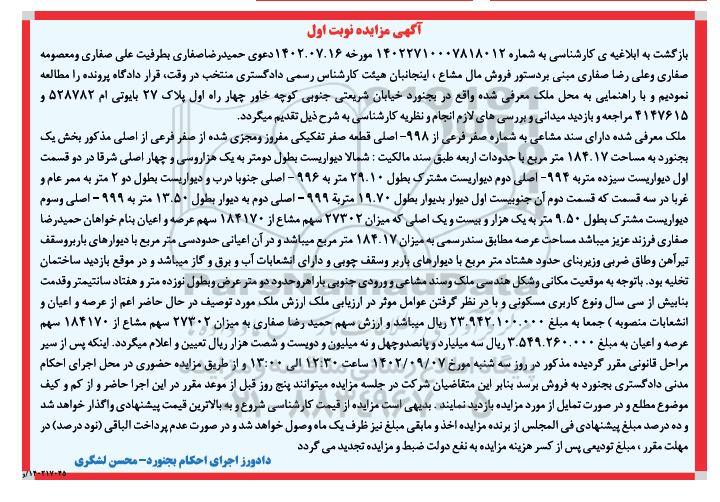 آگهی مزایده نوبت اول
بازگشت به ابلاغیه ی کارشناسی به شماره ۱۴۰۲۲۷۱۰۰۰۷۸۱۸۰۱۲ مورخه ۱۴۰۲.۰۷.۱۶ دعوی حمیدرضاصفاری بطرفیت علی صفاری ومعصومه
صفاری وعلی رضا صفاری مبنی بردستور فروش مال مشاع ، اینجانبان هیئت کارشناس رسمی دادگستری منتخب در وقت، قرار دادگاه پرونده را مطالعه
نمودیم و با راهنمایی به محل ملک معرفی شده واقع در بجنورد خیابان شریعتی جنوبی کوچه خاور چهار راه اول پلاک ۲۷ بایوتی ام ۵۲۸۷۸۲ و
۴۱۴۷۶۱۵ مراجعه و بازدید میدانی و بررسی های لازم انجام و نظریه کارشناسی به شرح ذیل تقدیم میگردد.
ملک معرفی شده دارای سند مشاعی به شماره صفر فرعی از ۹۹۸- اصلی قطعه صفر تفکیکی مفروز ومجزی شده از صفر فرعی از اصلی مذکور بخش یک
بجنورد به مساحت ۱۸۴.۱۷ متر مربع با حدودات اربعه طبق سند مالکیت : شمالا دیواریست بطول دومتر به یک هزاروسی و چهار اصلی شرقا در دو قسمت
اول دیواریست سیزده متربه ۹۹۴- اصلی دوم دیواریست مشترک بطول ۲۹.۱۰ متر به ۹۹۶ - اصلی جنوبا درب و دیواریست بطول دو ۲ متر به ممر عام و
غربا در سه قسمت که قسمت دوم آن جنوبیست اول دیوار بدیوار بطول ۱۹.۷۰ متربة ۹۹۹ - اصلی دوم به دیوار بطول ۱۳.۵۰ متر به ۹۹۹ - اصلی وسوم
دیواریست مشترک بطول ۹.۵۰ متر به یک هزار و بیست و یک اصلی که میزان ۲۷۳۰۲ سهم مشاع از ۱۸۴۱۷۰ سهم عرصه و اعیان بنام خواهان حمیدرضا
صفاری فرزند عزیز میباشد مساحت عرصه مطابق سندرسمی به میزان ۱۸۴.۱۷ متر مربع میباشد و در آن اعیانی حدودسی متر مربع با دیوارهای باربروسقف
تیرآهن وطاق ضربی وزیربنای حدود هشتاد متر مربع با دیوارهای باربر وسقف چوبی و دارای انشعابات آب و برق و گاز میباشد و در موقع بازدید ساختمان
تخلیه بود. باتوجه به موقعیت مکانی وشکل هندسی ملک وسند مشاعی و ورودی جنوبی باراهروحدود دو متر عرض وبطول نوزده متر و هفتاد سانتیمتر وقدمت
بنابیش از سی سال ونوع کاربری مسکونی و با در نظر گرفتن عوامل موثر در ارزیابی ملک ارزش ملک مورد توصیف در حال حاضر اعم از عرصه و اعیان و
انشعابات منصوبه ) جمعا به مبلغ ۲۳.۹۴۲.۱۰۰.۰۰۰ ریال میباشد و ارزش سهم حمید رضا صفاری به میزان ۲۷۳۰۲ سهم مشاع از ۱۸۴۱۷۰ سهم
عرصه و اعیان به مبلغ ۳.۵۴۹.۲۶۰.۰۰۰ ریال سه میلیارد و پانصدوچهل و نه میلیون و دویست و شصت هزار ریال تعیین و اعلام میگردد. اینکه پس از سیر
مراحل قانونی مقرر گردیده مذکور در روز سه شنبه مورخ ۱۴۰۲/۰۹/۰۷ ساعت ۱۲:۳۰ الی ۱۳:۰۰ و از طریق مزایده حضوری در محل اجرای احکام
مدنی دادگستری بجنورد به فروش برسد بنابر این متقاضیان شرکت در جلسه مزایده میتوانند پنج روز قبل از موعد مقرر در این اجرا حاضر و از کم و کیف
موضوع مطلع و در صورت تمایل از مورد مزایده بازدید نمایند . بدیهی است مزایده از قیمت کارشناسی شروع و به بالاترین قیمت پیشنهادی واگذار خواهد شد
و ده درصد مبلغ پیشنهادی فی المجلس از برنده مزایده اخذ و مابقی مبلغ نیز ظرف یک ماه وصول خواهد شد و در صورت عدم پرداخت الباقی (نود درصد) در
مهلت مقرر ، مبلغ تودیعی پس از کسر هزینه مزایده به نفع دولت ضبط و مزایده تجدید می گردد
دادورز اجرای احکام بجنورد- محسن لشگری
۱۴۰۲۱۷۰۴۵/و